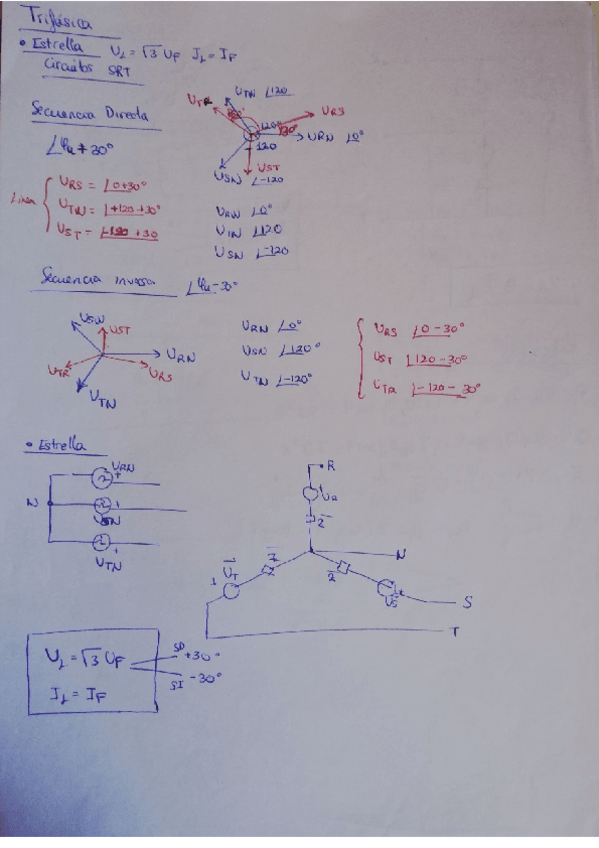 Trifásica
• Estrella U_L = √3 U_F I_L = I_F
Circuitos SRT
Secuencia Directa
∠φu + 30°
U_TR
U_TN ∠120
U_RS
120°
30°
U_RN ∠0°
120
U_SN ∠-120
U_ST
Línea
U_RS = ∠0+30°
U_TN = ∠+120+30°
U_ST = ∠-120+30
U_RN ∠0°
U_TN ∠120
U_SN ∠-120
Secuencia inversa ∠φu-30°
U_SN
U_ST
U_RN
U_TR
U_RS
U_TN
U_RN ∠0°
U_SN ∠120°
U_TN ∠-120°
U_RS ∠0-30°
U_ST ∠120-30°
U_TR ∠-120-30°
• Estrella
U_RN
+
N
+
U_SN
+
U_TN
R
+
U_R
Z
N
Z
U_T
+
Z
U_S
+
S
T
U_L = √3 U_F
SD +30°
SI -30°
I_L = I_F